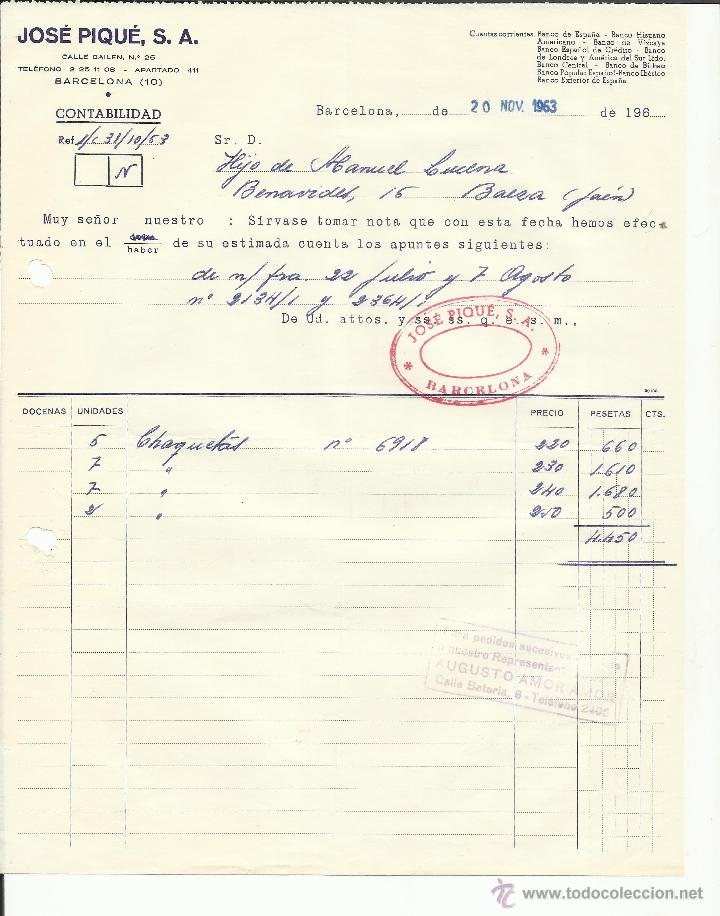 JOSÉ PIQUÉ, S. A.
CALLE BAILEN, N.º 26
TELÉFONO 2 25 11 08 - APARTADO 411
BARCELONA (10)
CONTABILIDAD
Cuentas corrientes: Banco de España - Banco Hispano
Americano - Banco de Vizcaya
Banco Español de Crédito - Banco
de Londres y América del Sur Ltdo.
Banco Central - Banco de Bilbao
Banco Popular Español-Banco Ibérico
Banco Exterior de España
Barcelona, de 20 NOV. 1963 de 196
Ref. s/c 31/10/63
N
Sr. D.
Hijo de Manuel Lucena
Benavides, 15 Baeza (Jaén)
Muy señor nuestro : Sírvase tomar nota que con esta fecha hemos efec-
tuado en el haber de su estimada cuenta los apuntes siguientes:
de n/ fra. 22 Julio y 7 Agosto
nº 2134/1 y 2364/1
De Ud. attos. y ss. ss. q. e. s. m.,
JOSÉ PIQUÉ, S. A.
* BARCELONA *
DOCENAS UNIDADES PRECIO PESETAS CTS.
5 Chaquetas nº 6918 220 660
7 " 230 1.610
7 " 240 1.680
2 " 250 500
4.450
pedidos sucesivos
nuestro Representant
AUGUSTO AMOR AMOR
Calle Batería, 6 - Teléfono 2406
www.todocoleccion.net